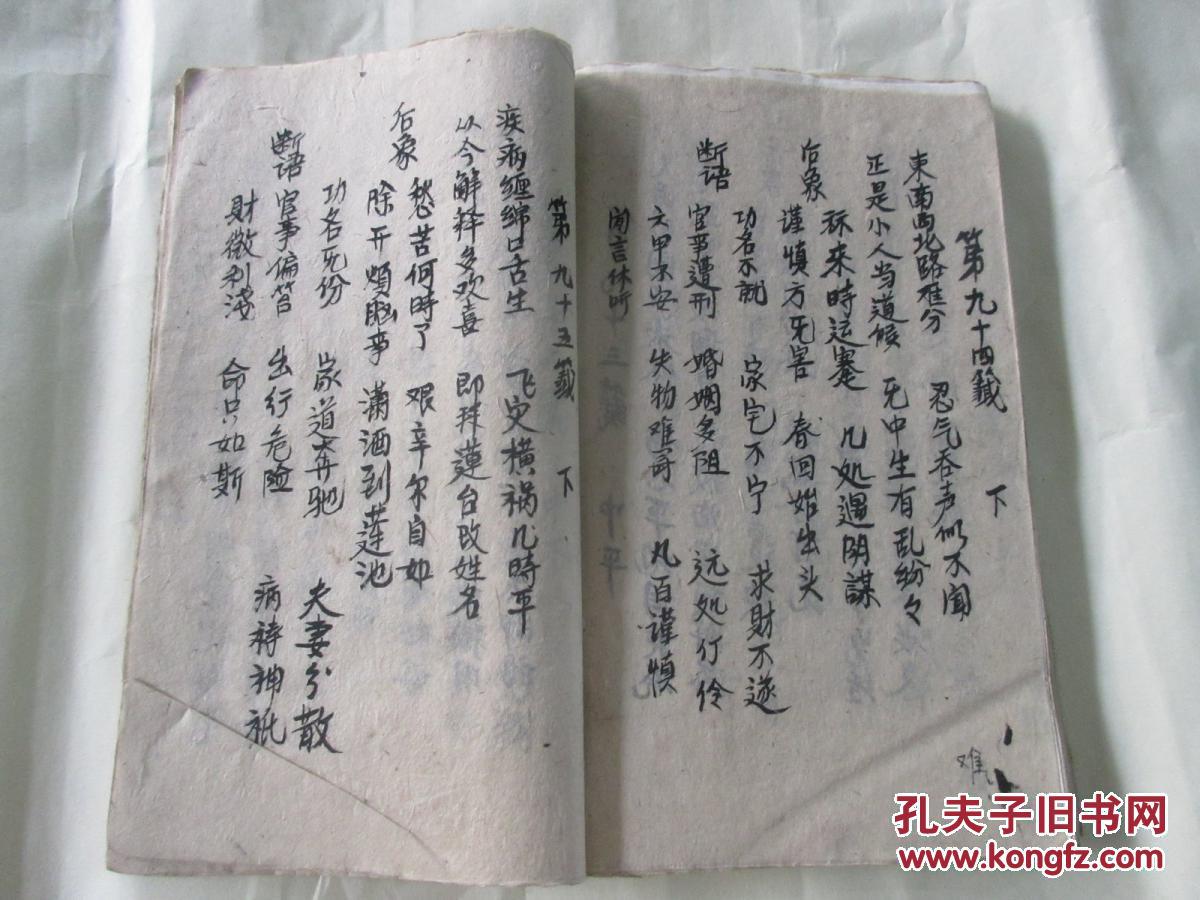 第九十四籤 下
東南西北路难分 忍气吞声似不闻
正是小人当道候 旡中生有乱纷々
后象 旀来時运蹇 几处遇阴謀
謹慎方旡害 春回始出头
断语 功名不就 家宅不宁 求財不遂
官事遭刑 婚姻多阻 远处行伶
六甲不安 失物难寻 凡百謹慎
闻言休听
难
第九十五籤 下
疾病缠绵口舌生 飞灾横祸几時平
从今解释多欢喜 即拜蓮台改姓名
后象 愁苦何時了 艰辛尔自如
除开煩恼事 潇洒到莲池
断语 功名旡份 家道奔驰 夫妻分散
官事偏笞 出行危险 病祷神祇
財微利浅 命只如斯
孔夫子旧书网
www.kongfz.com